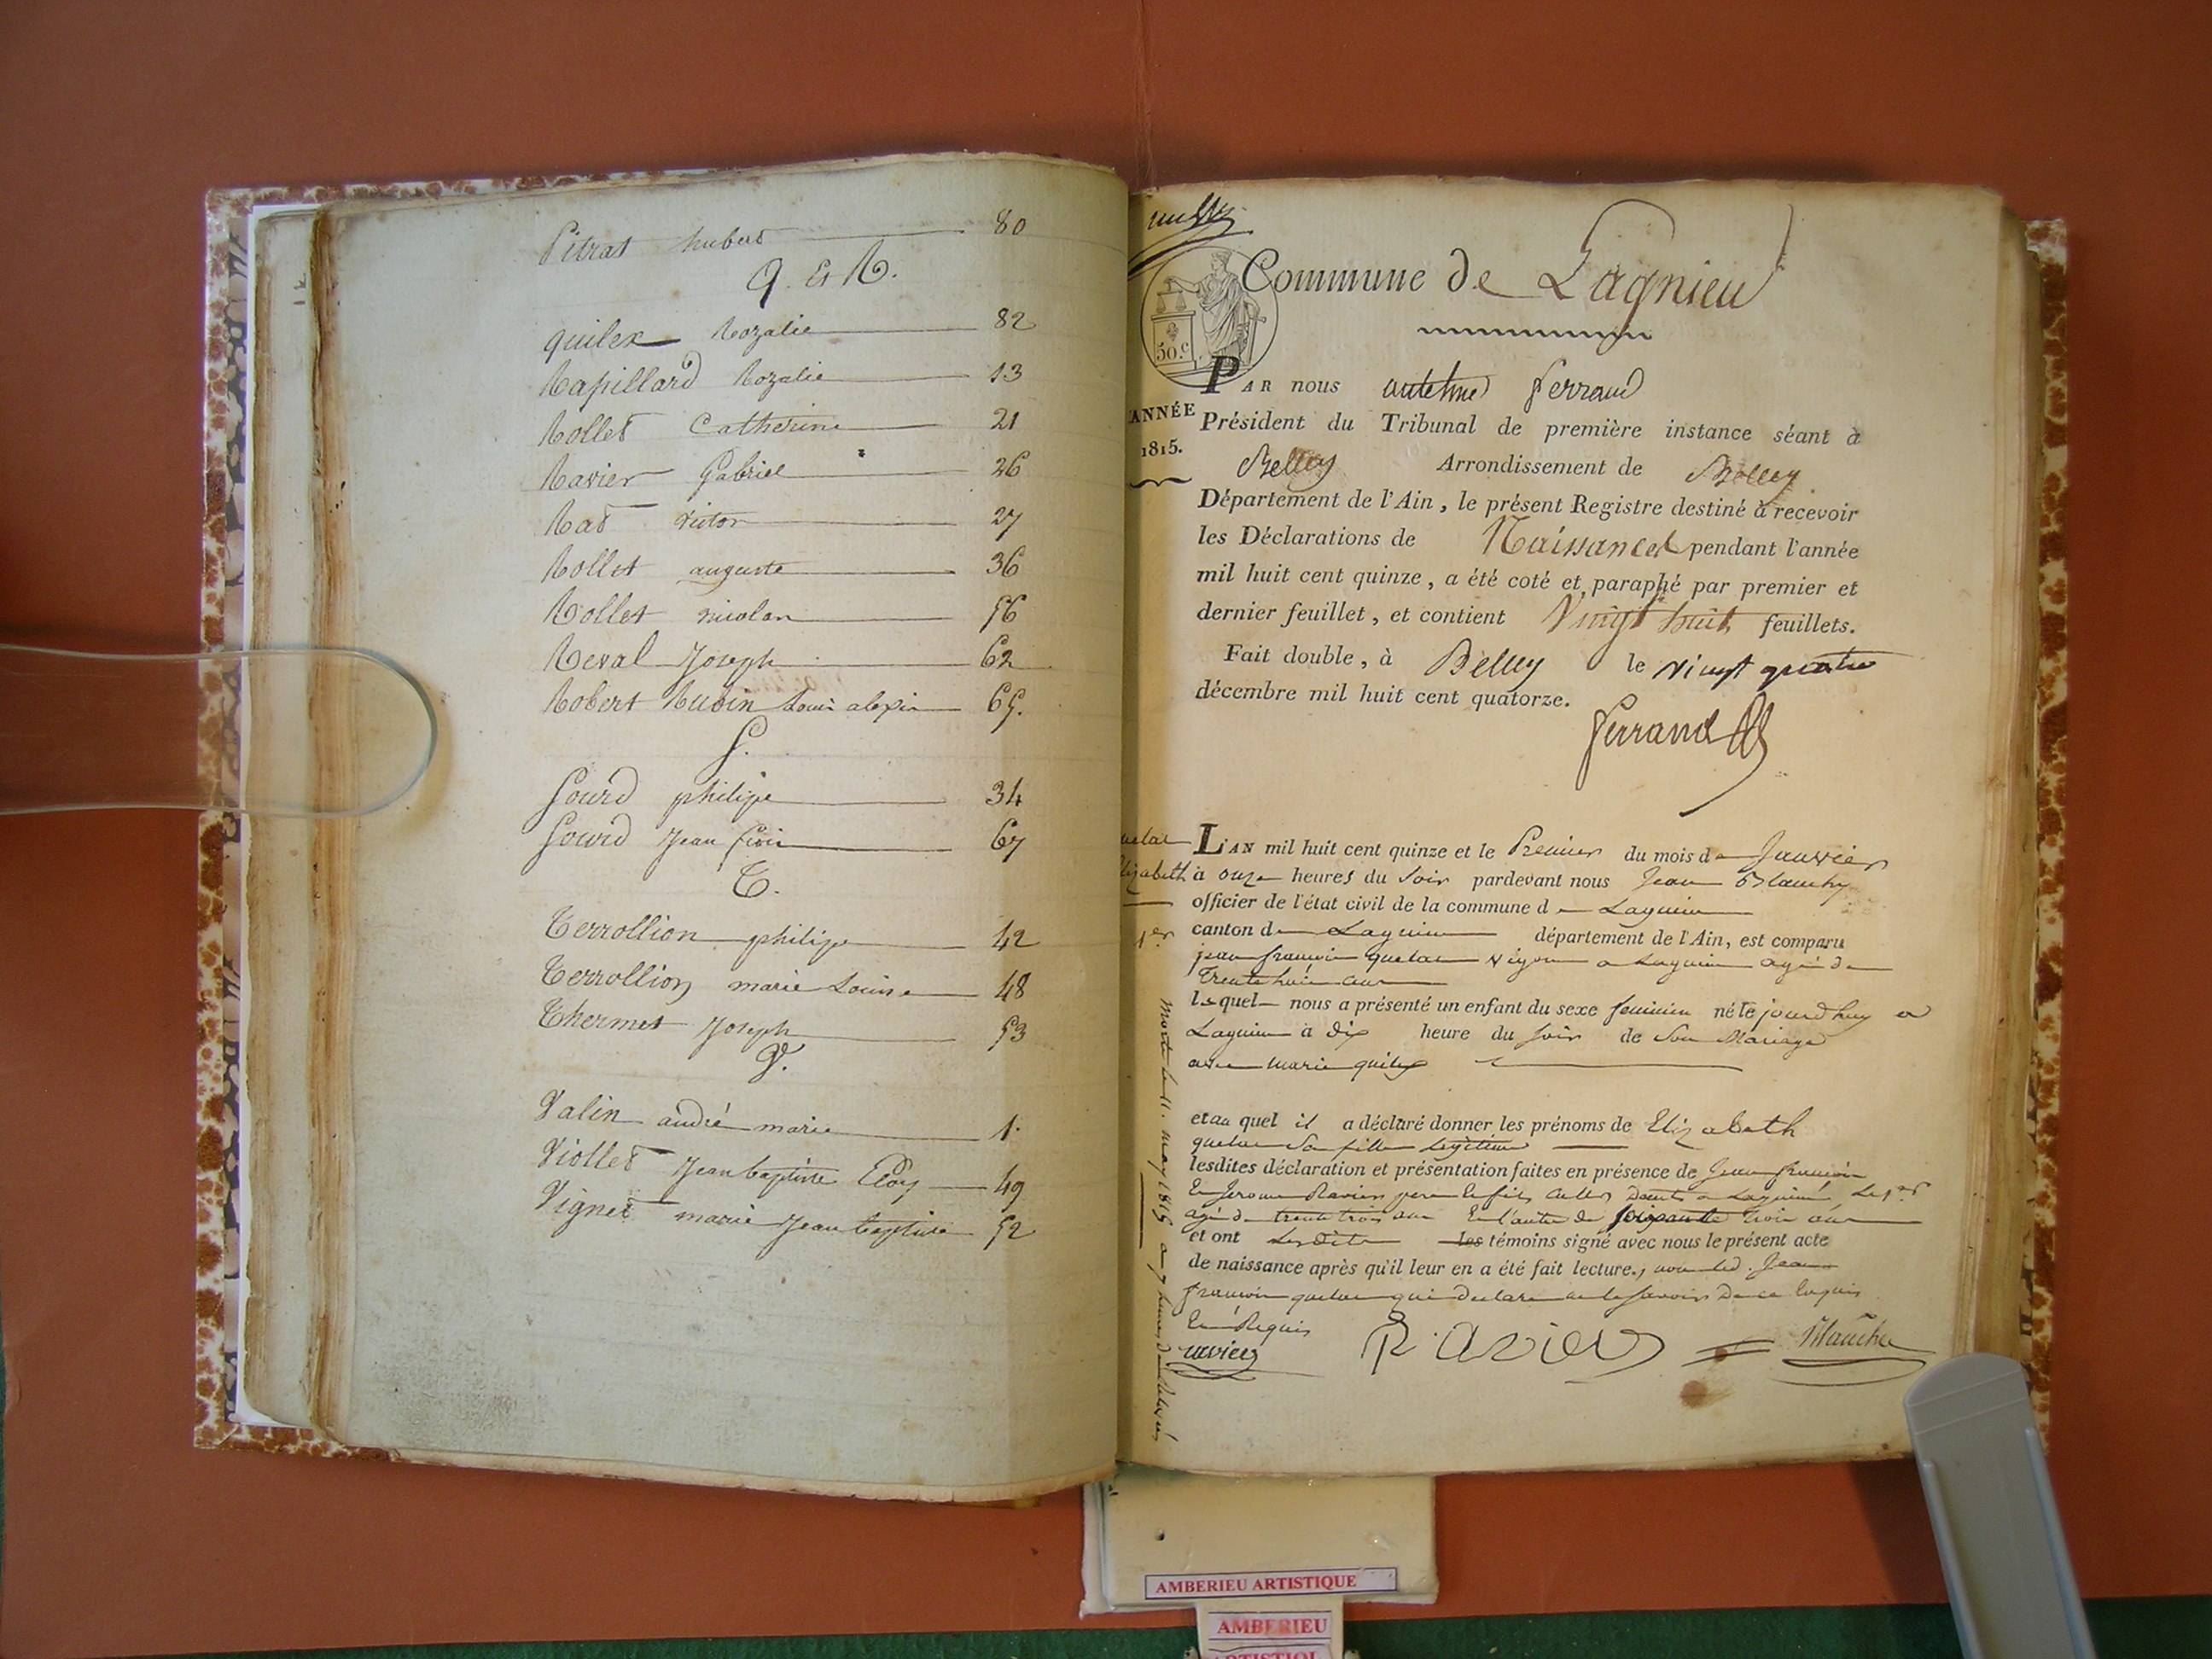 Pitrat hubert 80
Q. Et R.
quilex Rozalie 82
Rapillard Rozalie 13
Rollet Catherine 21
Ravier Gabriel 26
Rat victor 27
Rollet auguste 36
Rollet nicolas 56
Reval Joseph 62
Robert Rubin Louis alexis 65.
S.
Sourd philipe 34
Sourd Jean 67
T.
Terrollion philipe 42
Terrollion marie Louise 48
Thermet Joseph 53
V.
Valin andré marie 1.
Viollet Jean baptiste Eloy 49
Vignet marie Jean baptiste 52
Commune de Lagnieu
50.c
PAR nous antelme Ferrand
ANNÉE
1815.
Président du Tribunal de première instance séant à
Belley Arrondissement de Belley
Département de l'Ain, le présent Registre destiné à recevoir
les Déclarations de Naissances pendant l'année
mil huit cent quinze, a été coté et paraphé par premier et
dernier feuillet, et contient Vingt huit feuillets.
Fait double, à Belley le vingt quatre
décembre mil huit cent quatorze.
Ferrand
L'AN mil huit cent quinze et le Premier du mois de Janvier
à onze heures du Soir pardevant nous Jean Blanchy
officier de l'état civil de la commune de Lagnieu
canton de Lagnieu département de l'Ain, est comparu
1er
jean françois quelat a Lagnieu agé de
Trente huit ans
lequel nous a présenté un enfant du sexe feminin né le jourd'huy a
Lagnieu à dix heure du Soir de Son Mariage
avec marie quilex
et au quel il a déclaré donner les prénoms de Elizabeth
quelat Sa fille Legitime
lesdites déclaration et présentation faites en présence de Jean françois
Et Jerome Ravier pere Et fils a Lagnieu Le 1er
agé de trente trois ans Et l'autre de soixante trois ans
et ont Lesdits les témoins signé avec nous le présent acte
de naissance après qu'il leur en a été fait lecture, non led. Jean
françois quelat qui declare ne le savoir De ce Enquis
Et Requis
Ravier
Blanchy
AMBERIEU ARTISTIQUE
AMBERIEU